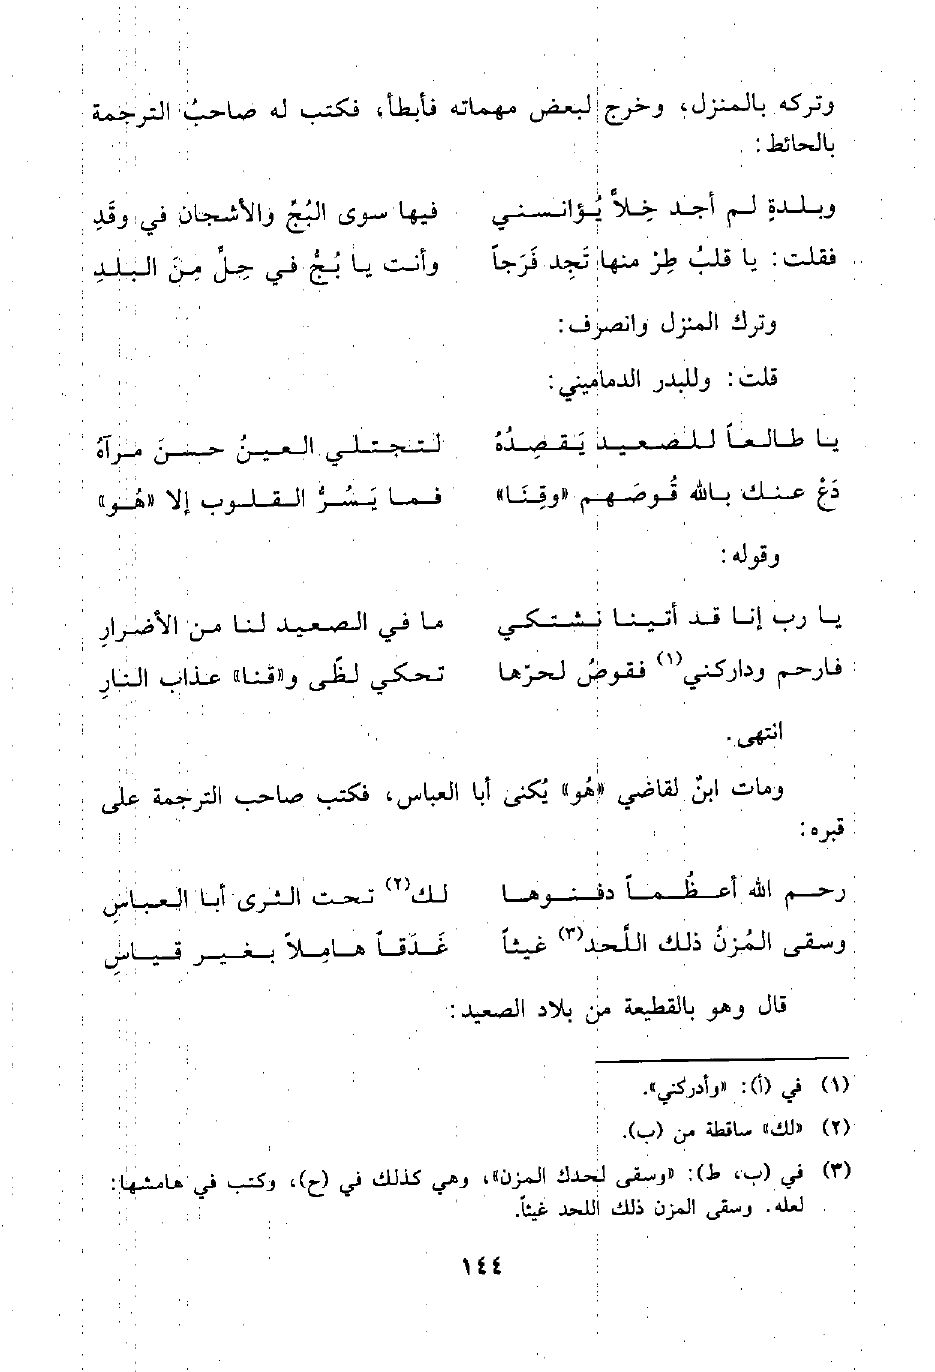 وتركه بالمنزل، وخرج لبعض مهماته فأبطأ، فكتب له صاحبُ الترجمة
بالحائط:
وبلدةِ لم أجد خِلاًّ يُؤانسني فيها سوى البُجِّ والأشجان في وقَدِ
فقلت: يا قلبُ طِرْ منها تَجِد فَرَجاً وأنت يا بُجُّ في حِلٍّ مِنَ البلدِ
وترك المنزل وانصرف:
قلت: وللبدر الدماميني:
يا طالعاً للصعيد يَقصِدُهُ لتجتلي العينُ حسنَ مرآهُ
دَعْ عنك بالله قُوصَهم «وقِنَا» فما يَسُرُّ القلوب إلا «هُو»
وقوله:
يا رب إنا قد أتينا نشتكي ما في الصعيد لنا من الأضرارِ
فارحم وداركني(١) فقوصُ لحرّها تحكي لظًى و«قنا» عذاب النارِ
انتهى.
ومات ابنٌ لقاضي «هُو» يُكنى أبا العباس، فكتب صاحب الترجمة على
قبره:
رحم الله أعظُماً دفنوها لك(٢) تحت الثرى أبا العباسِ
وسقى المُزنُ ذلك اللَّحد(٣) غيثاً غَدَقاً هامِلاً بغير قياسِ
قال وهو بالقطيعة من بلاد الصعيد:
(١) في (أ): «وأدركني».
(٢) «لك» ساقطة من (ب).
(٣) في (ب، ط): «وسقى لحدك المزن»، وهي كذلك في (ح)، وكتب في هامشها:
لعله. وسقى المزن ذلك اللحد غيثاً.
١٤٤